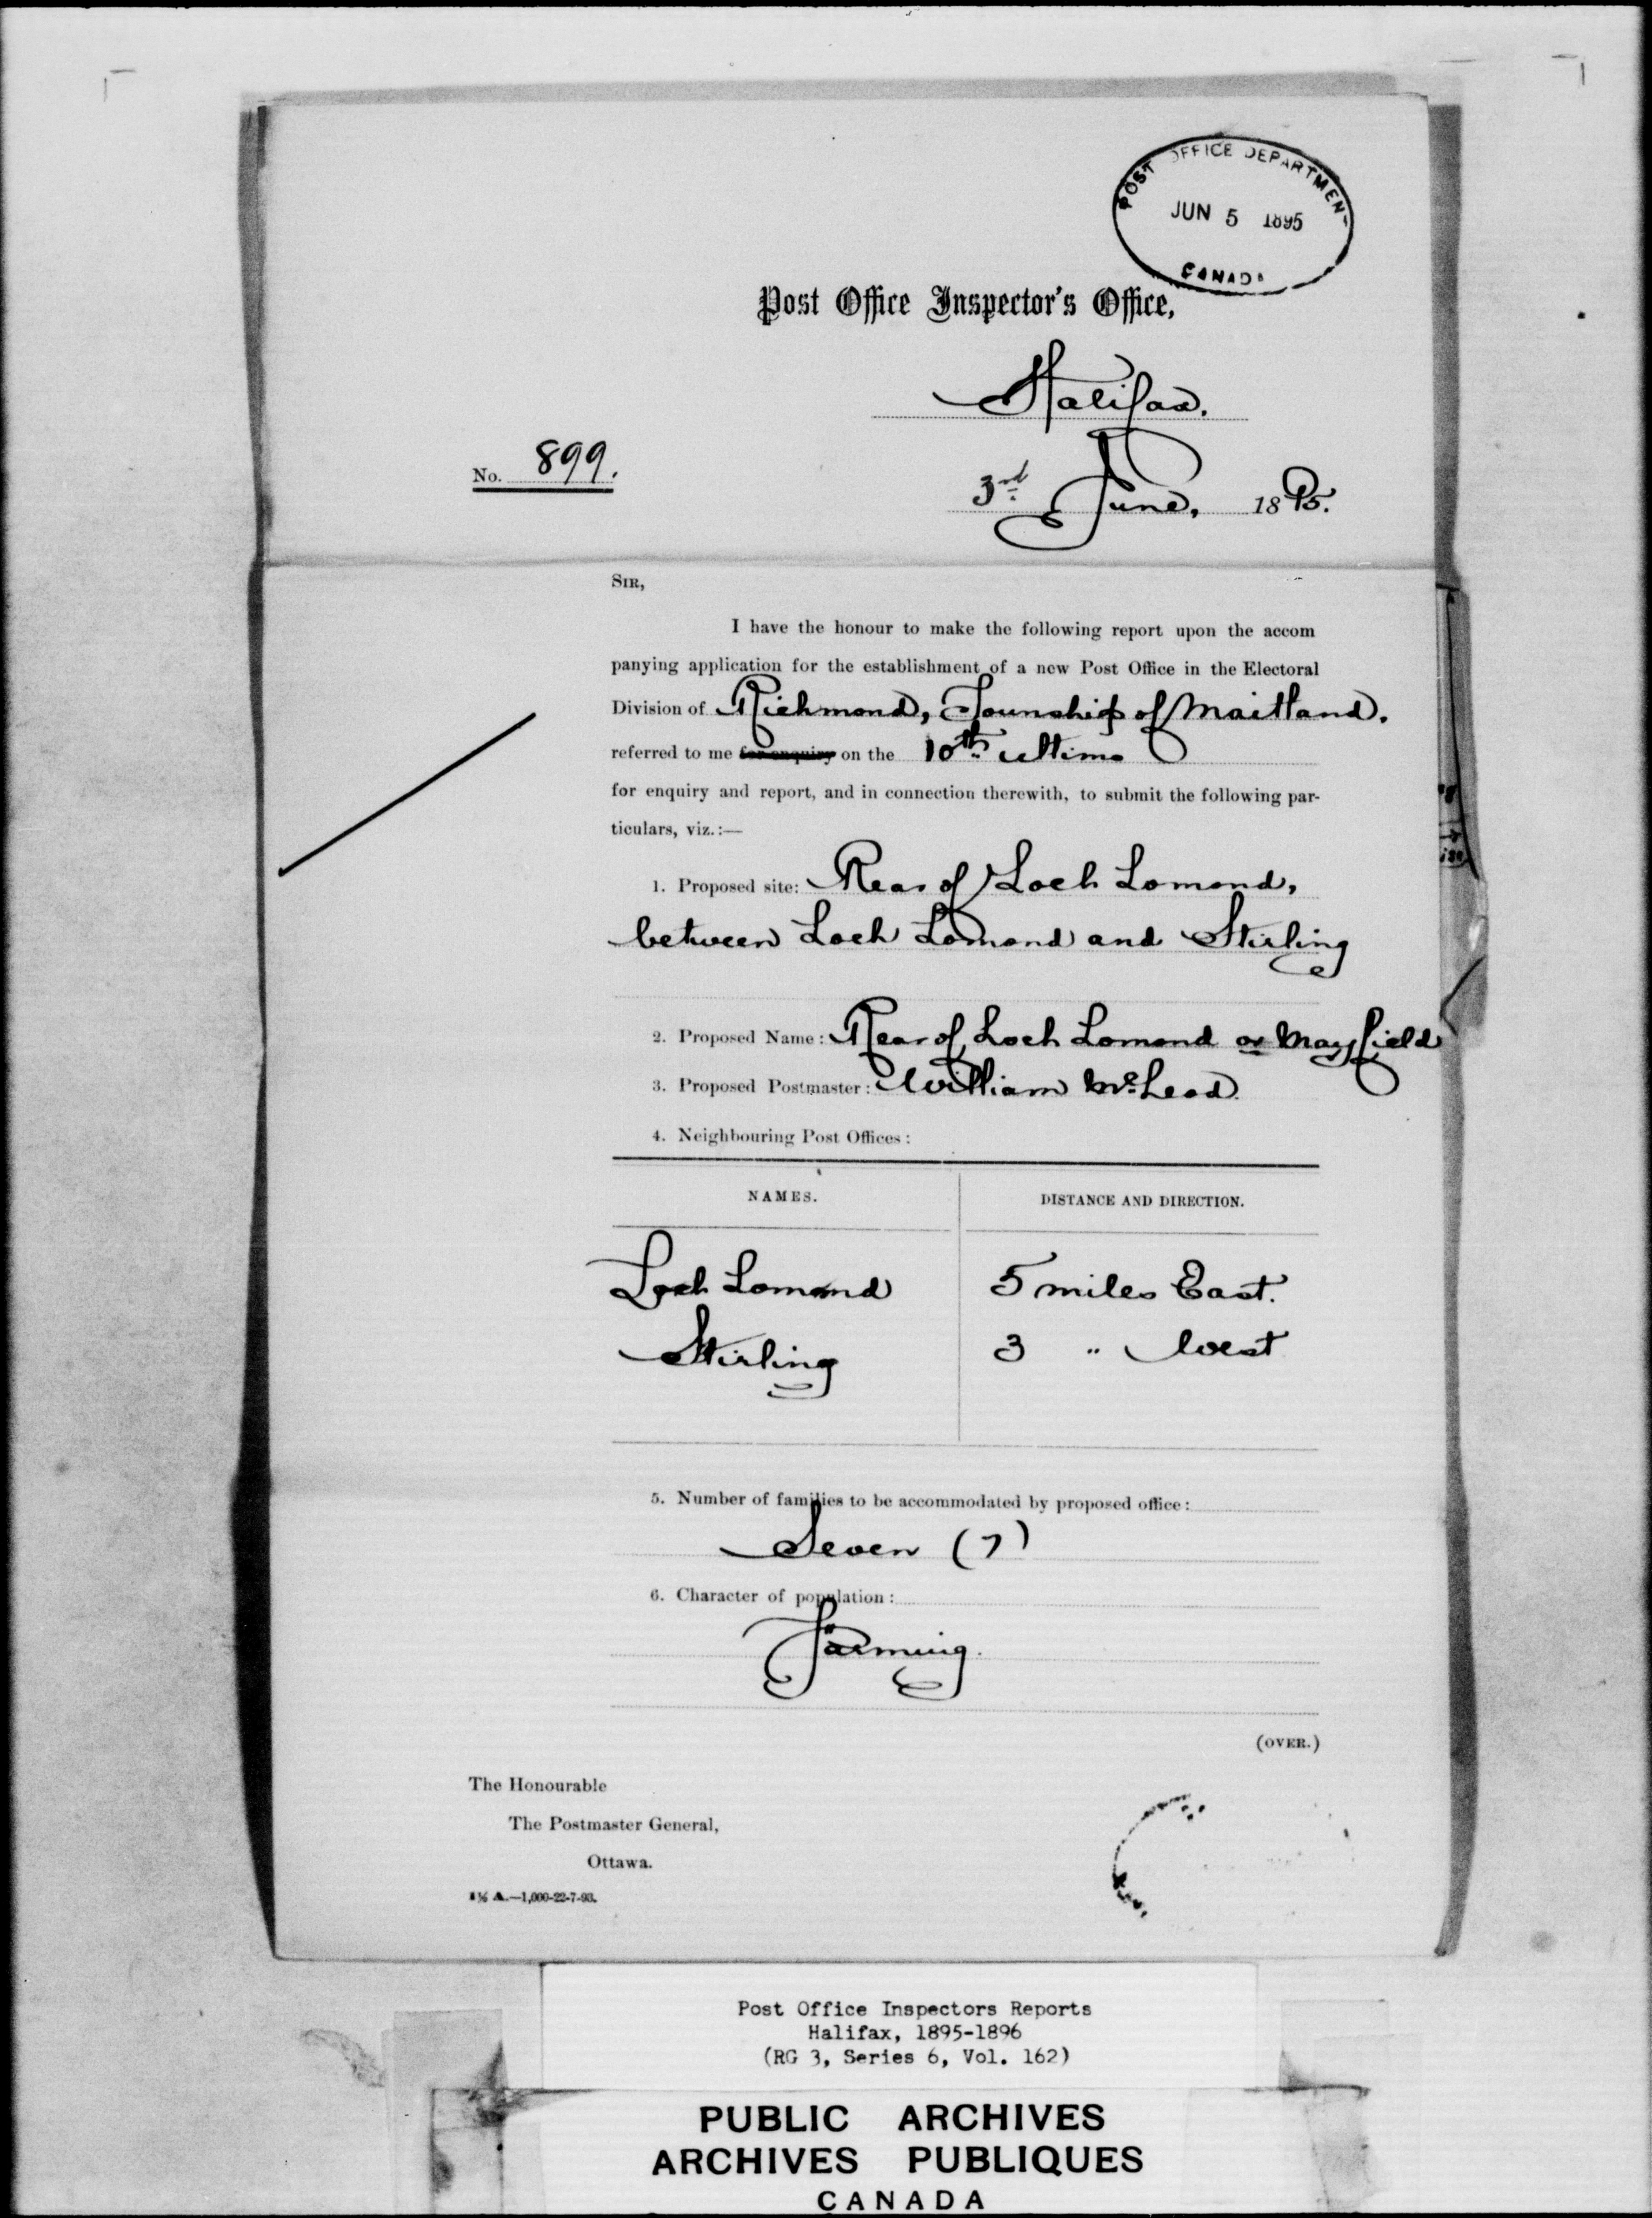 POST OFFICE DEPARTMENT
JUN 5 1895
CANADA
Post Office Inspector's Office,
Halifax.
No. 899.
3rd June, 1895.
SIR,
I have the honour to make the following report upon the accom
panying application for the establishment of a new Post Office in the Electoral
Division of Richmond, Township of Maitland.
referred to me for enquiry on the 10th ultimo
for enquiry and report, and in connection therewith, to submit the following par-
ticulars, viz.:—
1. Proposed site: Rear of Loch Lomond,
between Loch Lomond and Stirling
2. Proposed Name: Rear of Loch Lomond or Mayfield
3. Proposed Postmaster: William McLeod.
4. Neighbouring Post Offices:
NAMES. DISTANCE AND DIRECTION.
Loch Lomond 5 miles East.
Stirling 3 " West
5. Number of families to be accommodated by proposed office:
Seven (7)
6. Character of population:
Farming.
(OVER.)
The Honourable
The Postmaster General,
Ottawa.
A.—1,000-22-7-93.
Post Office Inspectors Reports
Halifax, 1895-1896
(RG 3, Series 6, Vol. 162)
PUBLIC ARCHIVES
ARCHIVES PUBLIQUES
CANADA